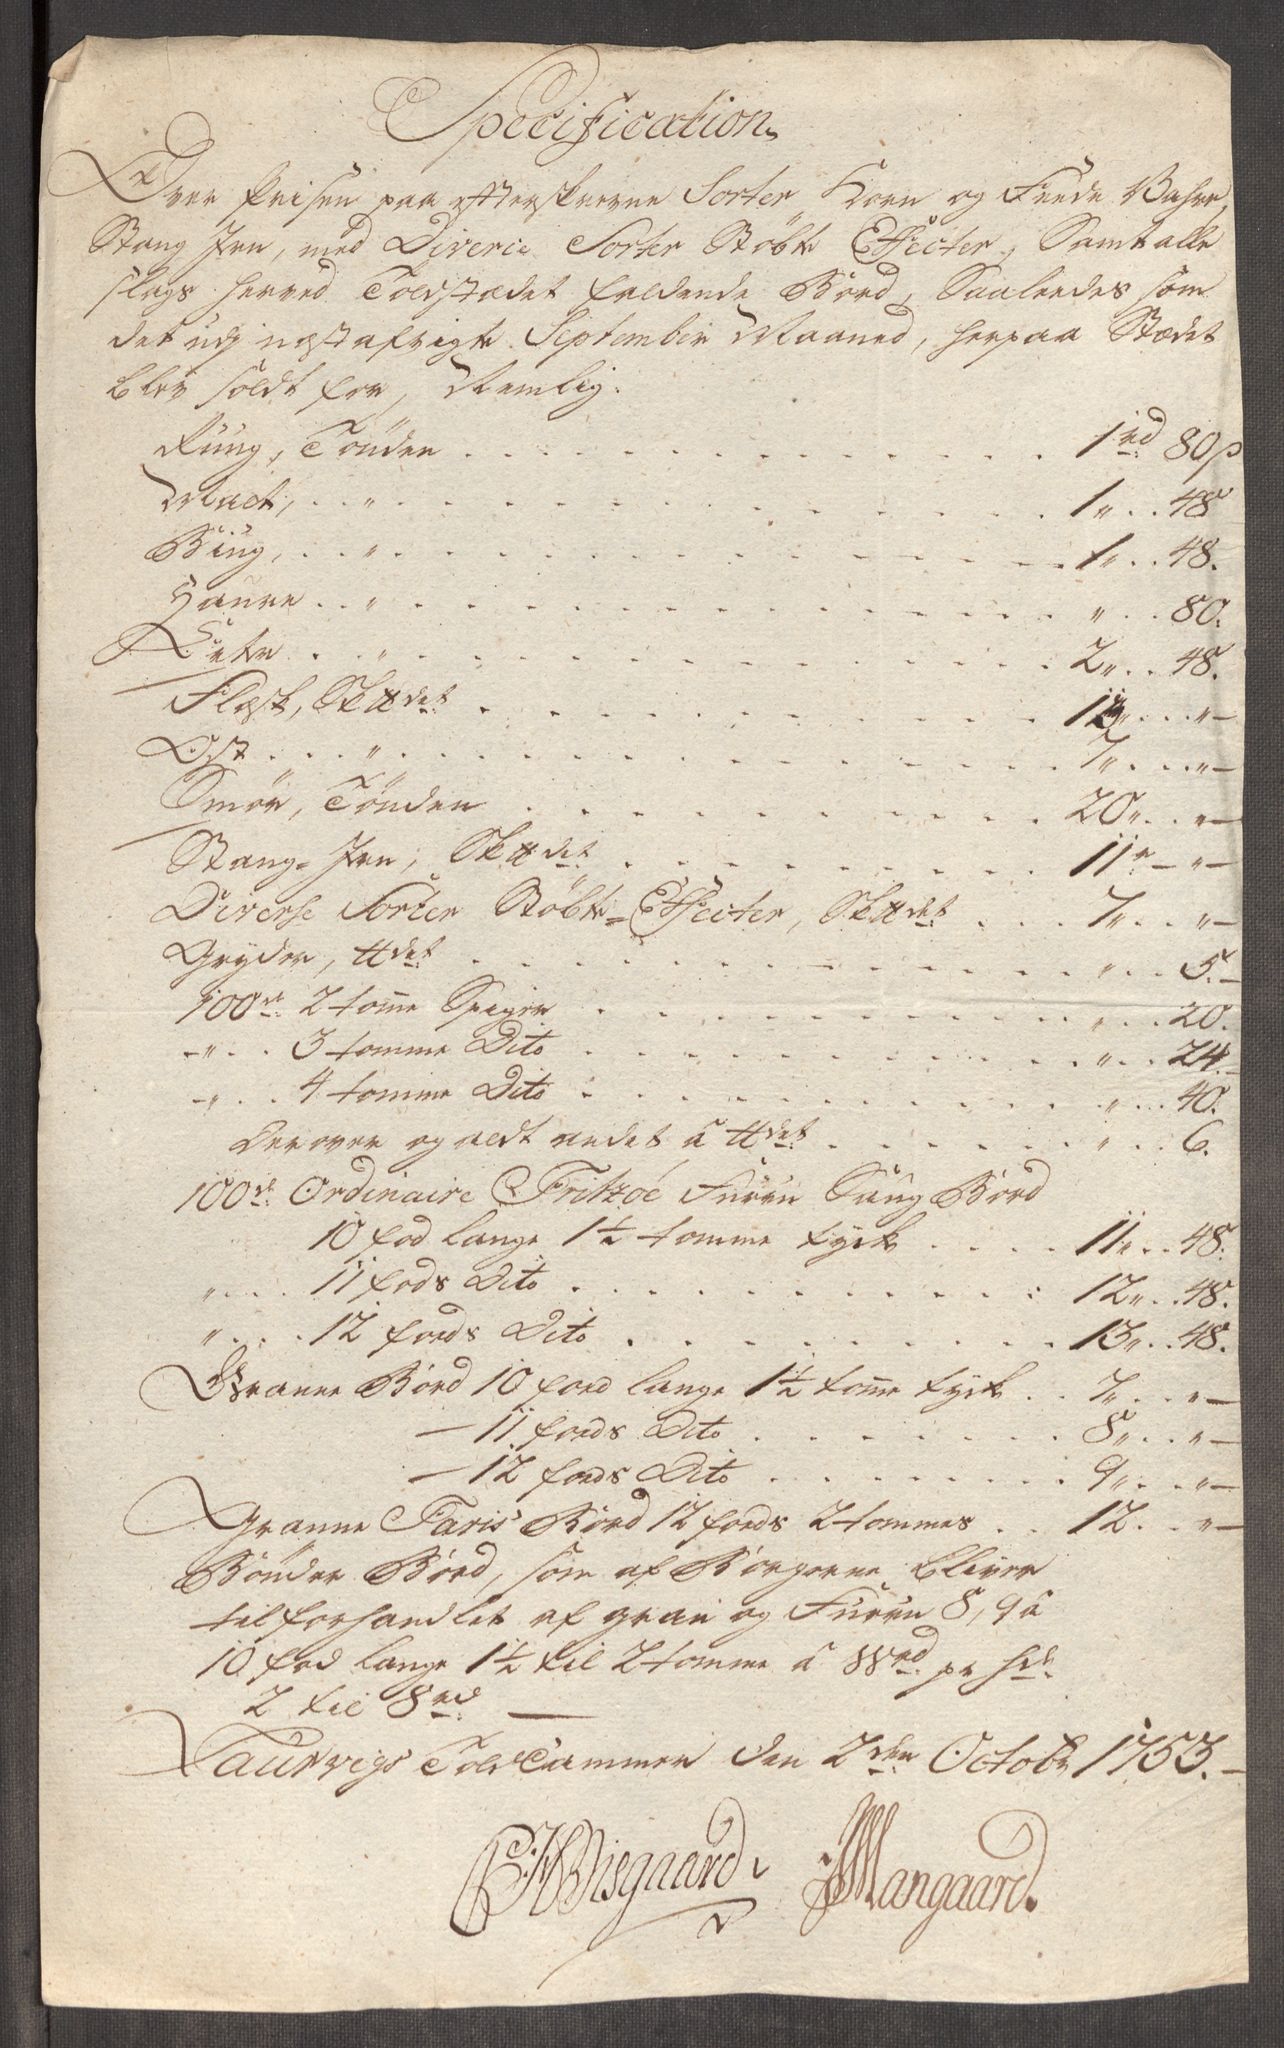 Specification
Over Prisen paa efterskrevne Sorter Korn og Feede Vahre,
Stang Jern, med Diverse Sorter Støbte Effecter, Samt alle
slags herved Toldstædet faldende Bord, Saaleedes som
det udj næstafvigte September Maaned, herpaa Stædet
blev soldt for, Nemlig.
Rúúg, Tønden . . . 1 rd 80 s
Malt, . . " . . . 1 " . . 48
Biúg, . . " . . . 1 " . . 48.
Haure . . " . . . " . . 80.
Erter . . " . . . 2 " . . 48.
Flæsk, Sk℔det . . . 12 " . . " —
Ost . . . " . . . 7 " . . " —
Smør, Tønden . . . 20 " . . " —
Stang-Jern, Sk℔det . . . 11 " — " —
Diverse Sorter Støbte-Effecter, Sk℔det . . . 7 " . . " —
Gryder, ℔det . . . " . . 5. —
100de 2 tomme Spiger . . . " . . 20.
— " . . 3 tomme Dito . . . " . . 24. —
— " . . 4 tomme Dito . . . " . . 40.
Derover og aldt andet â ℔det . . . " . . 6.
100de Ordinaire Fritzøe Furru Saug Bord
10 fod lange 1½ tomme tyck . . . 11 " . . 48.
" . . . 11 fods Dito . . . 12 " . . 48.
" . . . 12 fods Dito . . . 13 " . . 48.
Granne Bord 10 fod lange 1½ tomme tyck . . 7 " . . " —
— 11 fods Dito . . . 8 " . . " —
— 12 fods Dito . . . 9 " . . " —
Granne Faris Bord 12 fods 2 tommes . . 12. . " —
Bønder Bord, som af Borgerne bliver
tilforhandlet af gran og Furru 8, 9 â
10 fod lange 1½ til 2 tomme â pr hde
2 til 8 rd —
Laurvigs Told Cammer den 2den Octobr 1753. —
Wisgaard JMangaard.